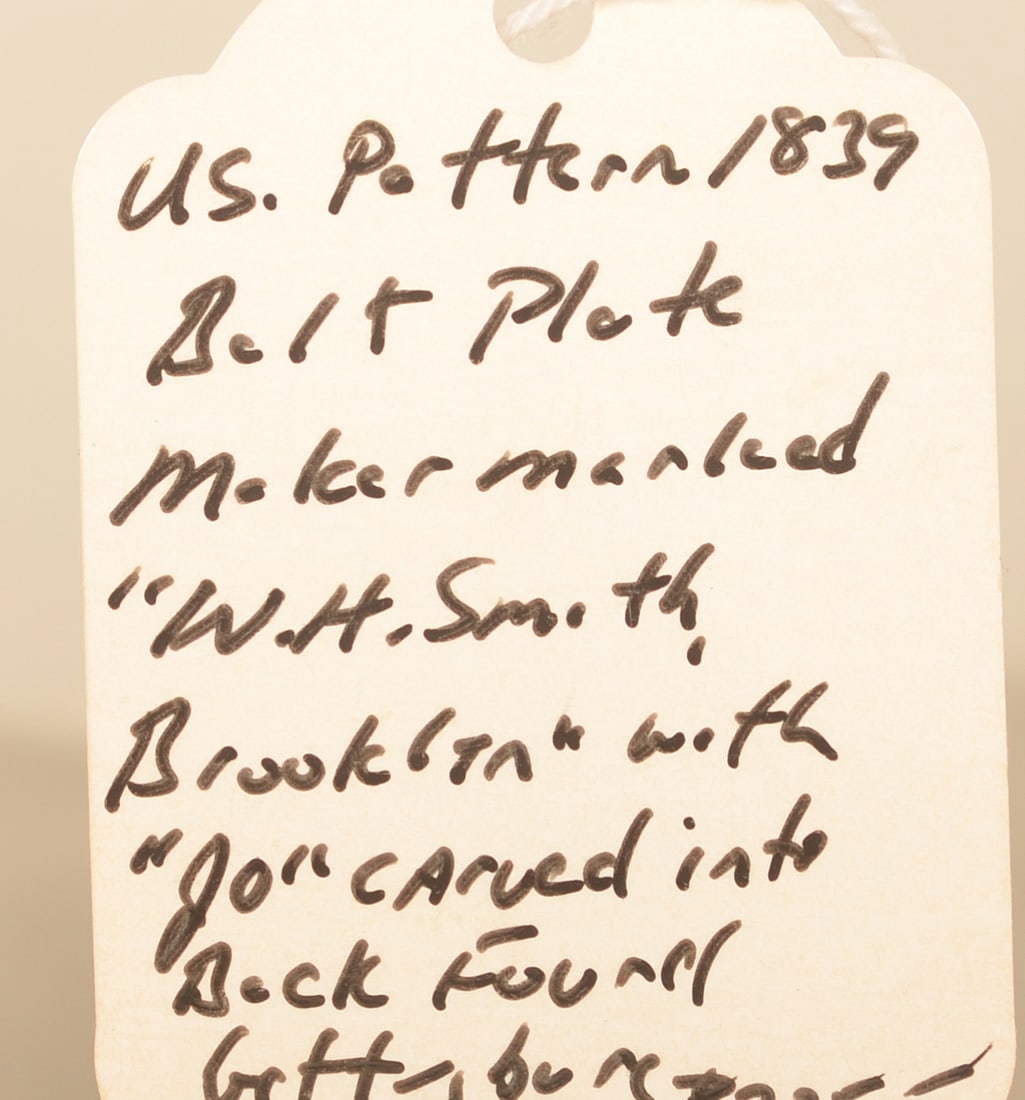 US. Pattern 1839
Belt Plate
Maker marked
"W.H. Smith,
Brooklyn" with
"Jo" carved into
Back Found
Gettysburg